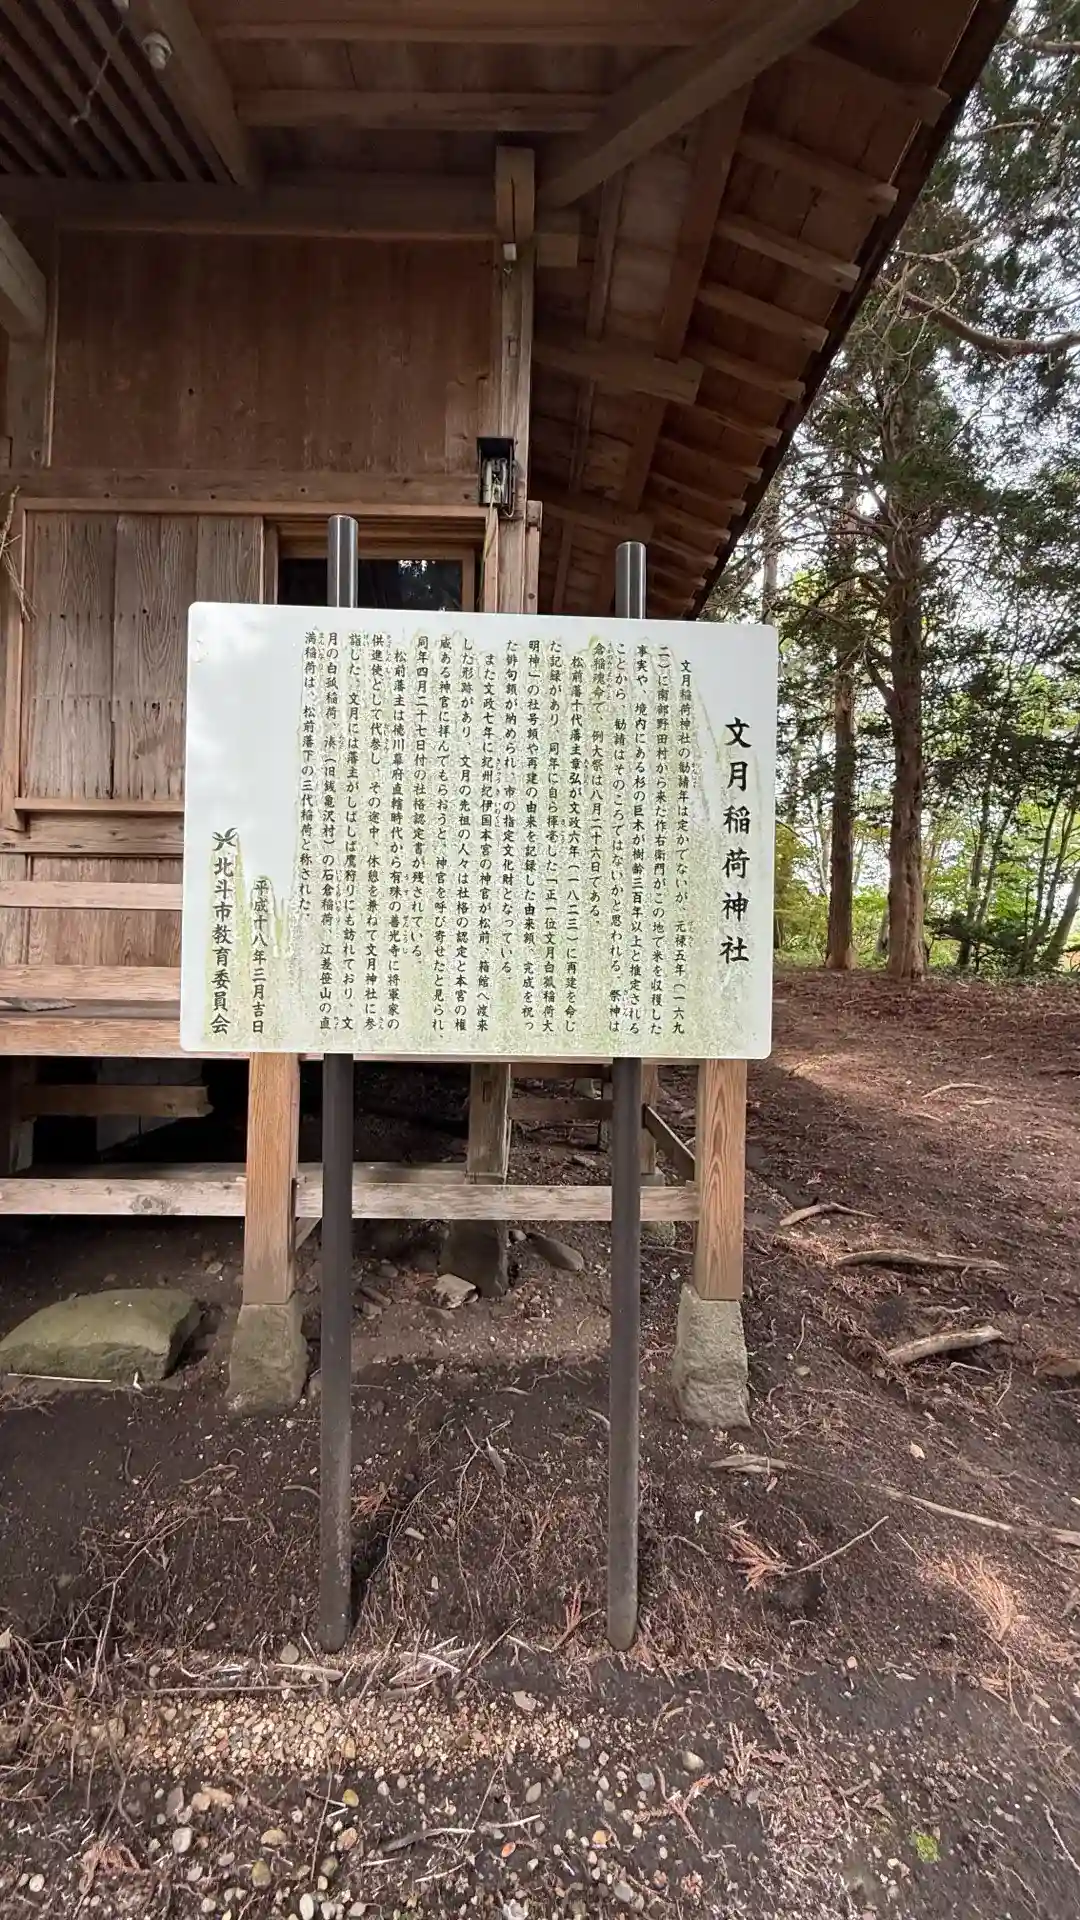 文月稲荷神社
文月稲荷神社の勧請年は定かでないが、元禄五年（一六九
二）に南部野田村から来た作右衛門がこの地で米を収穫した
事実や、境内にある杉の巨木が樹齢三百年以上と推定される
ことから、勧請はそのころではないかと思われる。祭神は
倉稲魂命で、例大祭は八月二十六日である。
松前藩十代藩主章弘が文政六年（一八二三）に再建を命じ
た記録があり、同年に自ら揮毫した「正一位文月白狐稲荷大
明神」の社号額や再建の由来を記録した由来額、完成を祝っ
た俳句額が納められ、市の指定文化財となっている。
また文政七年に紀州紀伊国本宮の神官が松前、箱館へ渡来
した形跡があり、文月の先祖の人々は社格の認定と本宮の権
威ある神官に拝んでもらおうと、神官を呼び寄せたと見られ、
同年四月二十七日付の社格認定書が残されている。
松前藩主は徳川幕府直轄時代から有珠の善光寺に将軍家の
供進使として代参し、その途中、休憩を兼ねて文月神社に参
詣した。文月には藩主がしばしば鷹狩りにも訪れており、文
月の白狐稲荷、湊（旧銭亀沢村）の石倉稲荷、江差笹山の直
満稲荷は、松前藩下の三代稲荷と称された。
平成十八年三月吉日
北斗市教育委員会